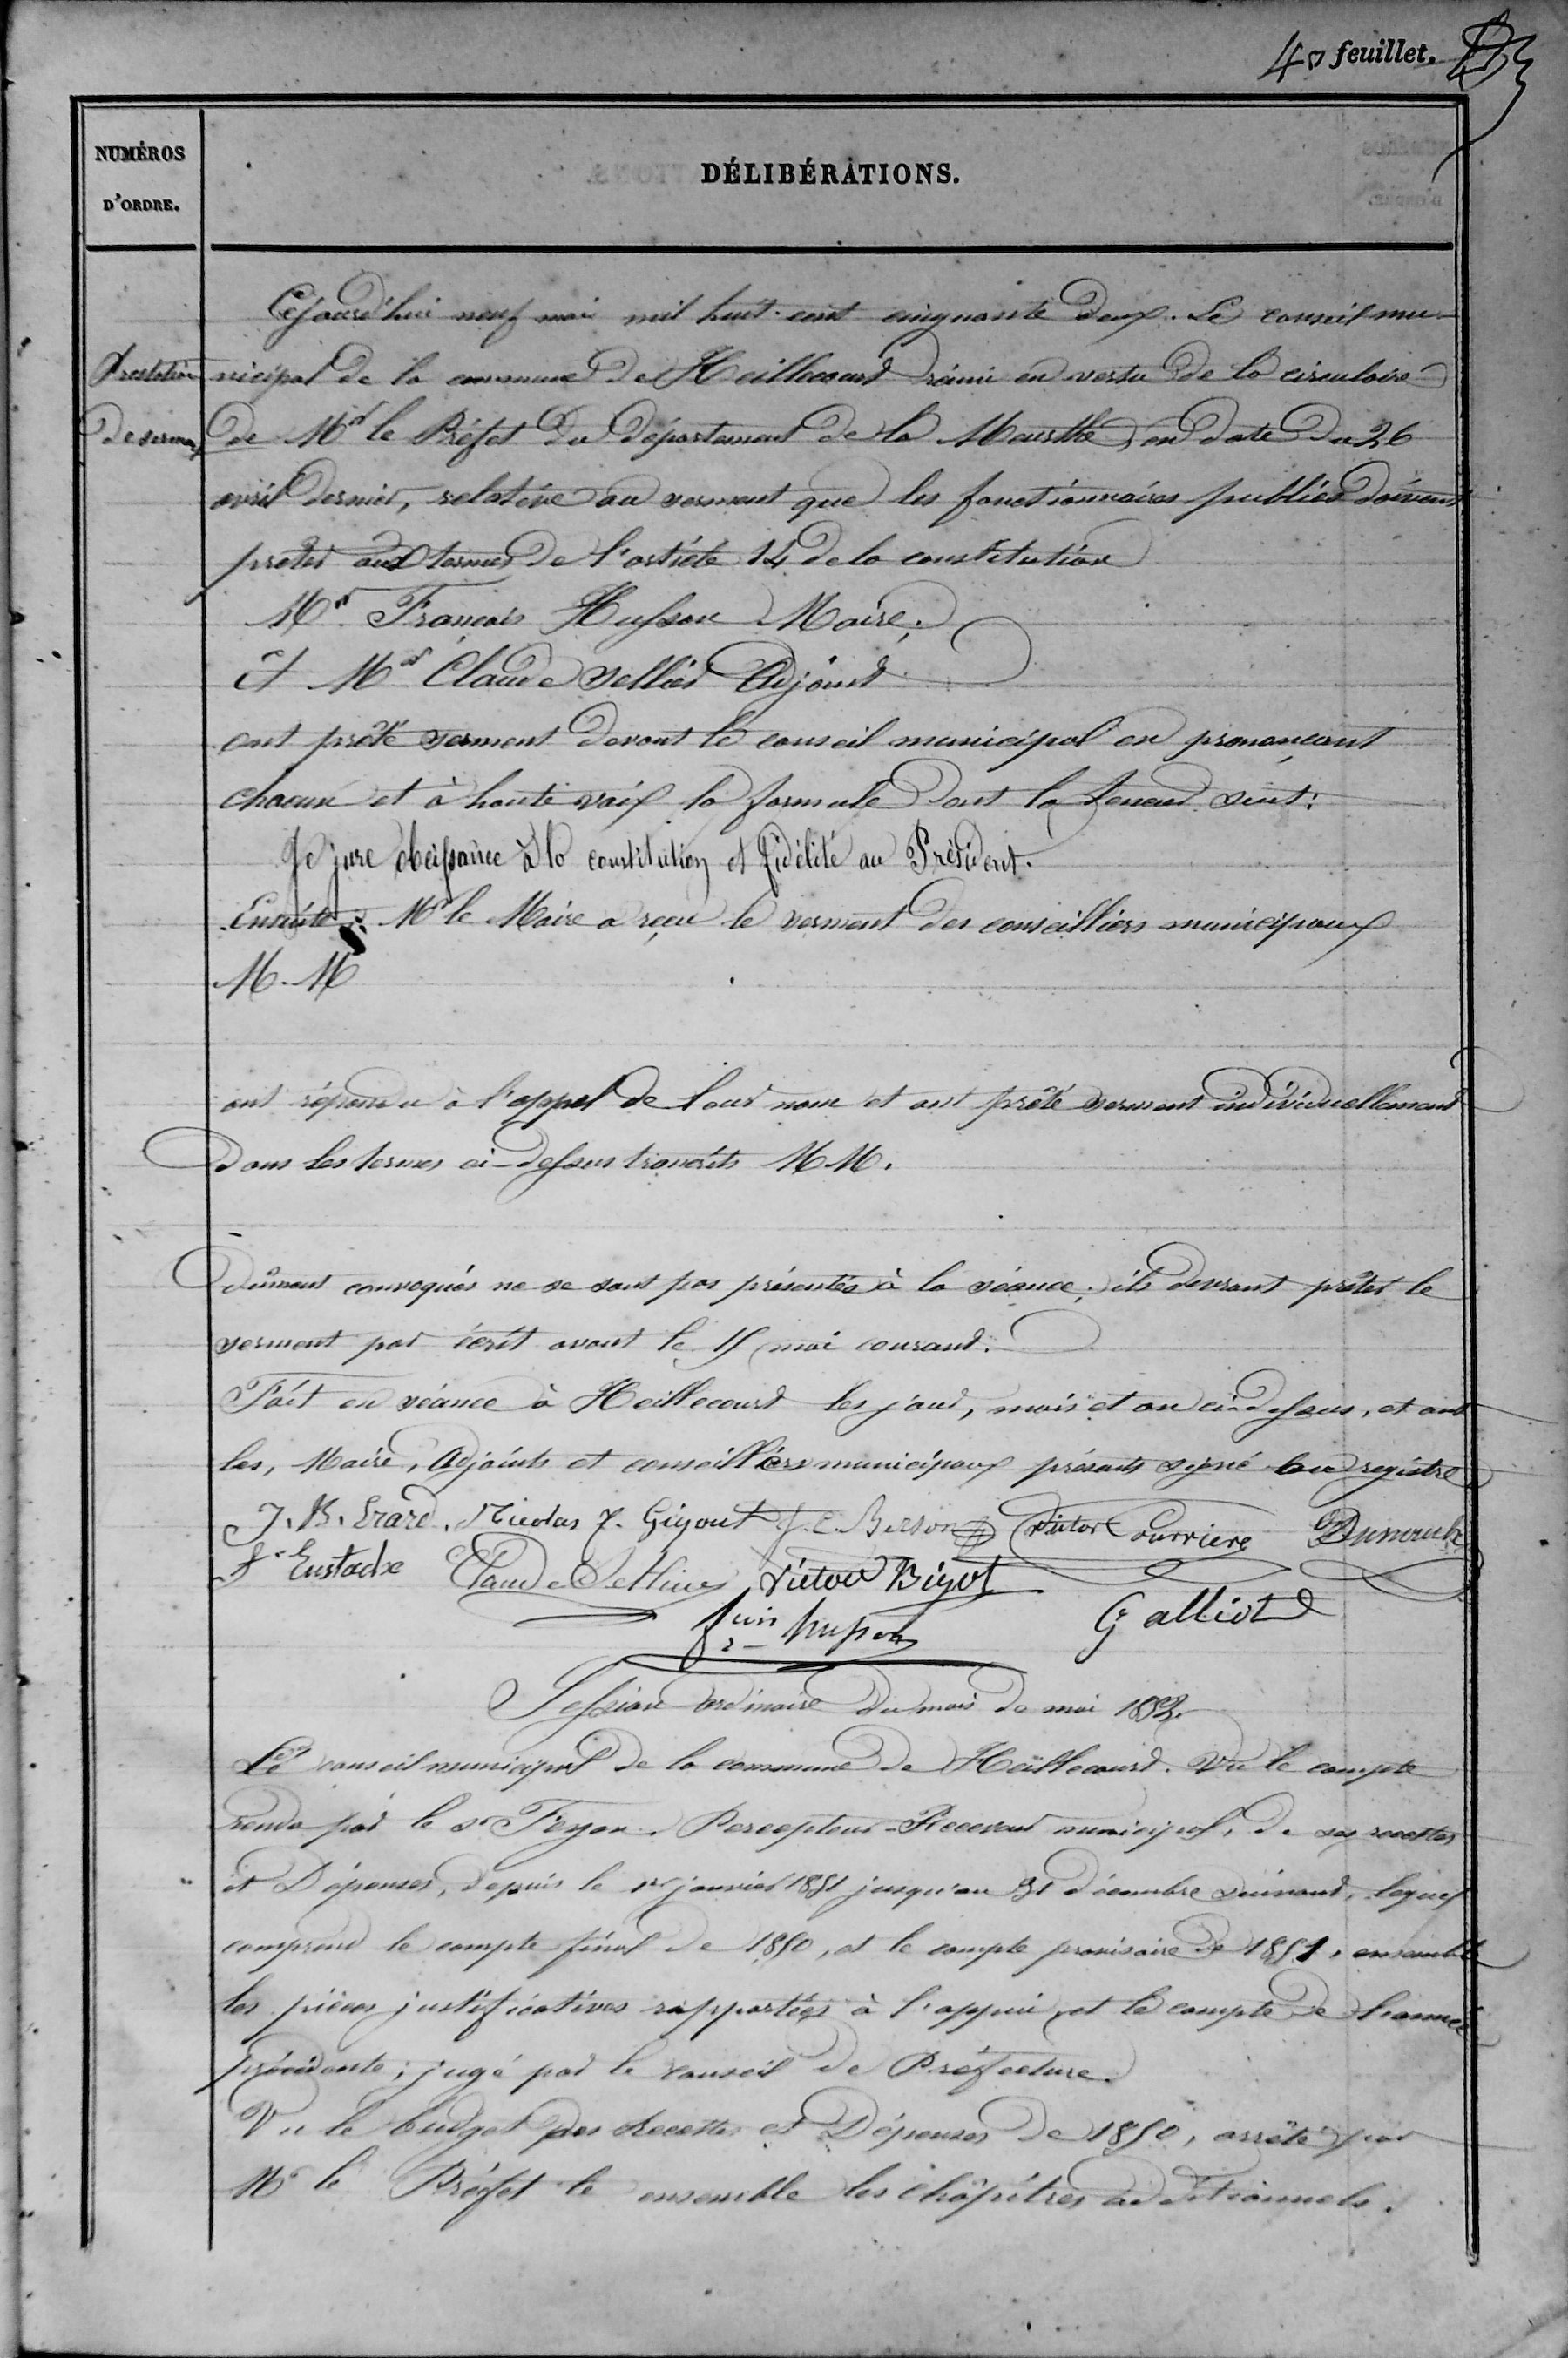 40 feuillet.
NUMÉROS
D'ORDRE.
DÉLIBÉRATIONS.
Cejourd'hui neuf mai mil huit-cent cinquante deux. Le conseil mu-
Prestation
nicipal de la commune de Heillecourt réuni en vertu de la circulaire
de serment
de Mr le Préfet du département de la Meurthe, en date du 26
avril dernier, relative au serment que les fonctionnaires publics doivent
preter aux termes de l'article 14 de la constitution
Mr François Husson Maire;
et Mr Claude Sellier Adjoint
ont prêté serment devant le conseil municipal en prononçant
chacun et à haute voix la formule dont la teneur suit:
Je jure obeissance à la constitution et fidélité au Président.
Ensuite Mr le Maire a reçu le serment des conseilliers municipaux
M. M
ont répondu à l'appel de leur nom et ont prêté serment individuellement
dans les termes ci-dessus transcrits MM.
dûment convoqués ne se sont pas présentés à la séance; ils devront prêter le
serment par écrit avant le 15 mai courant.
Fait en séance à Heillecourt les jour, mois et an ci-dessus, et ont
les, Maire, Adjoints et conseilliers municipaux présents signé au registre
J. B. Erard. Nicolas F. Gigout J. C. Berson Victor Courriere
Fs Eustache Claude Sellier Victor Bigot
Galliot
fcois husson
Session ordinaire du mois de mai 1852.
Le conseil municipal de la commune de Heillecourt. Vu le compte
rendu par le Sr Feyen Percepteur-Receveur municipal, de ses recettes
et Dépenses, depuis le 1er janvier 1851 jusqu'au 31 décembre suivant, lequel
comprend le compte final de 1850, et le compte provisoire de 1851, ensemble
les pièces justificatives rapportées à l'appui, et le compte de l'année
précédente; jugé par le conseil de Préfecture.
Vu le budget des Recettes et Dépenses de 1850, arrêté par
Mr le Préfet le ensemble les chapitres additionnels.